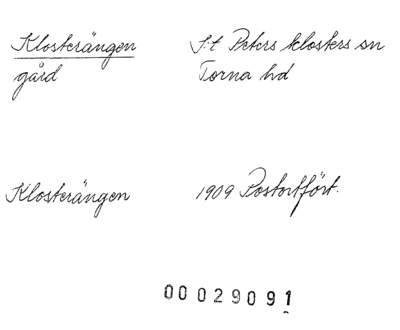 Klosterängen S:t Peters klosters sn
gård Torna hd
Klosterängen 1909 Postortfört.
00029091